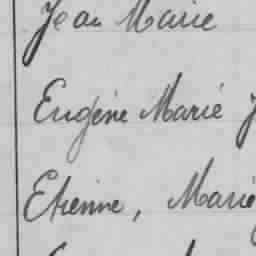 Jean Marie
Eugène Marie J
Etienne, Marie